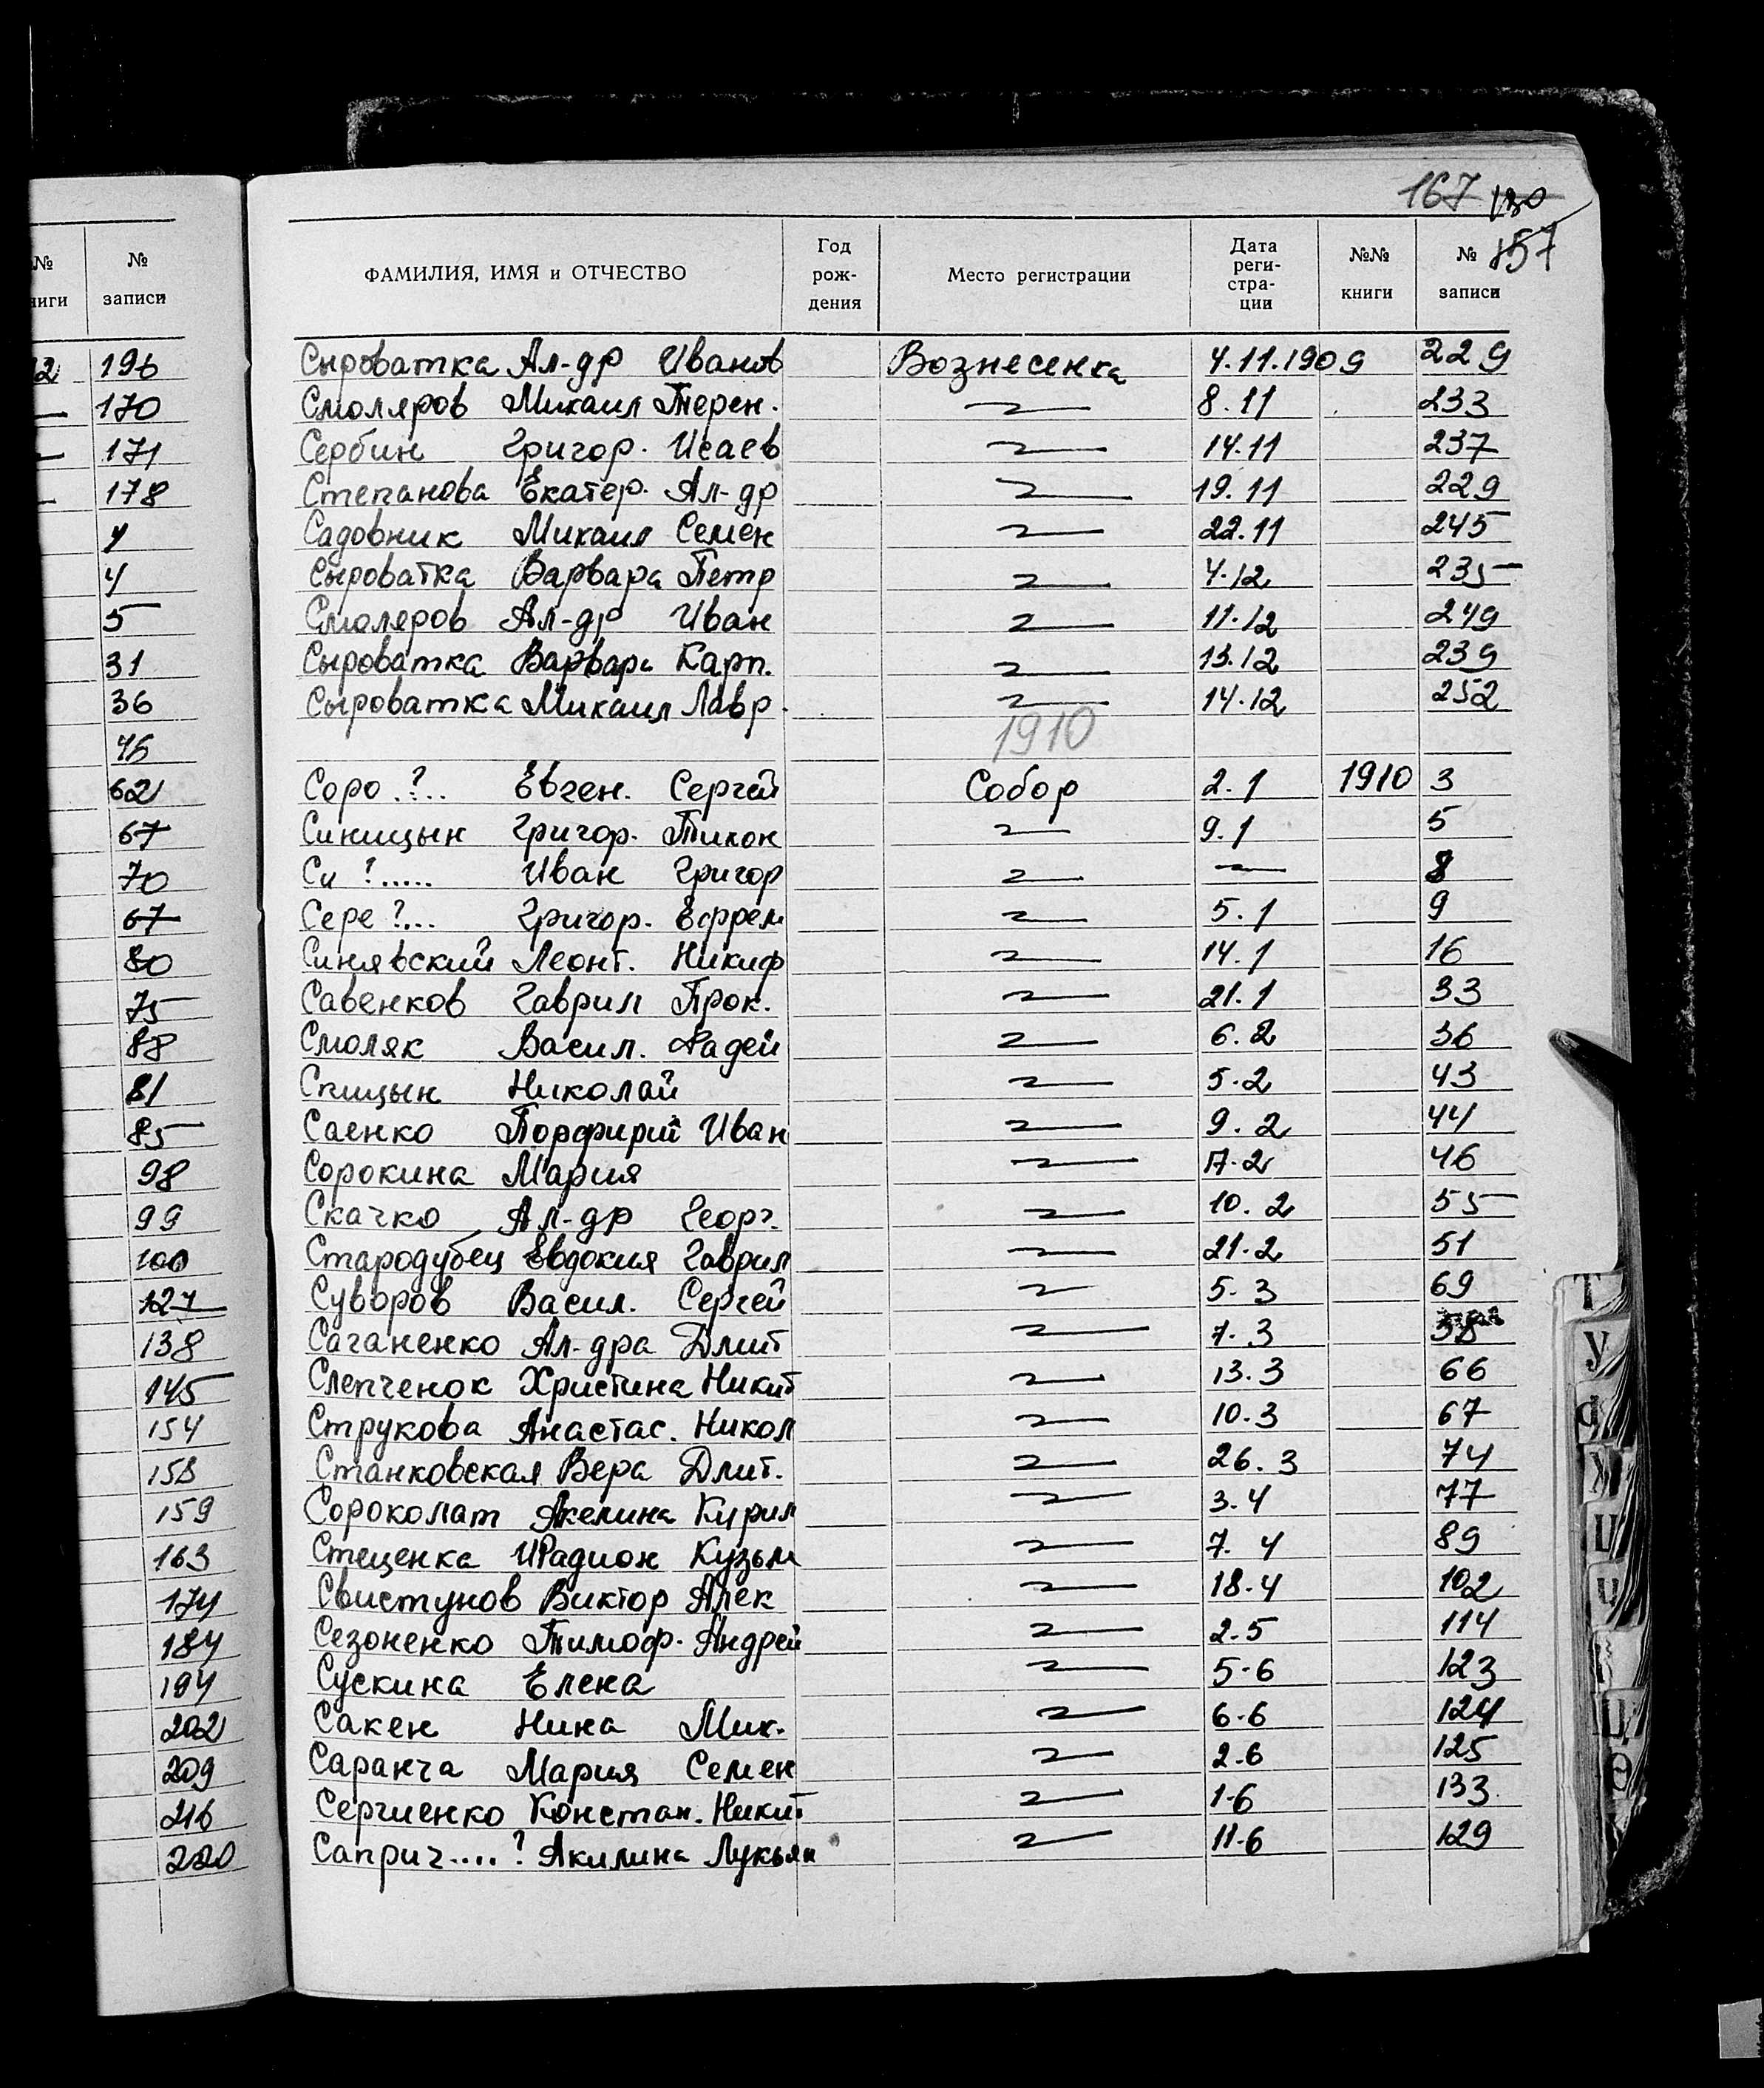 167 130
157
№№ книги № записи
ФАМИЛИЯ, ИМЯ и ОТЧЕСТВО Год рож- дения Место регистрации Дата реги- стра- ции №№ книги № записи
196
170
171
178
4
4
5
31
36
46
62
67
70
67
80
75
88
81
85
98
99
100
127
138
145
154
158
159
163
174
184
194
202
209
216
220
Сыроватка Ал-др Иванов Вознесенка 4.11.1909 229
Смоляров Михаил Терен. 8.11 233
Сербин Григор. Исаев 14.11 237
Степанова Екатер. Ал-др 19.11 229
Садовник Михаил Семен 22.11 245
Сыроватка Варвара Петр 4.12 235
Смоляров Ал-др Иван 11.12 249
Сыроватка Варвара Карп. 13.12 239
Сыроватка Михаил Лавр. 14.12 252
1910
Соро.?.. Евген. Сергей Собор 2.1 1910 3
Синицын Григор. Тихон 9.1 5
Си ?..... Иван Григор — 8
Сере?... Григор. Ефрем 5.1 9
Синявский Леонт. Никиф 14.1 16
Савенков Гаврил Прок. 21.1 33
Смоляк Васил. Фадей 6.2 36
Спицын Николай 5.2 43
Саенко Порфирий Иван 9.2 44
Сорокина Мария 17.2 46
Скачко Ал-др Георг. 10.2 55
Стародубец Евдокия Гаврил 21.2 51
Суворов Васил. Сергей 5.3 69
Саганенко Ал-дра Дмит 7.3 58
Слепченок Христина Никит 13.3 66
Струкова Анастас. Никол 10.3 67
Станковская Вера Дмит. 26.3 74
Сороколат Акелина Кирил 3.4 77
Стеценка Кузьм 7.4 89
Свистунов Виктор Алек 18.4 102
Сезоненко Тимоф. Андрей 2.5 114
Сускина Елена 5-6 123
Сакен Нина Мик. 6-6 124
Саранча Мария Семен 2.6 125
Сергиенко Констан. Никит 1-6 133
Саприч....? Акилина Лукьян 11-6 129
Т
У
Ф
Ц
Ч
Щ
Ө